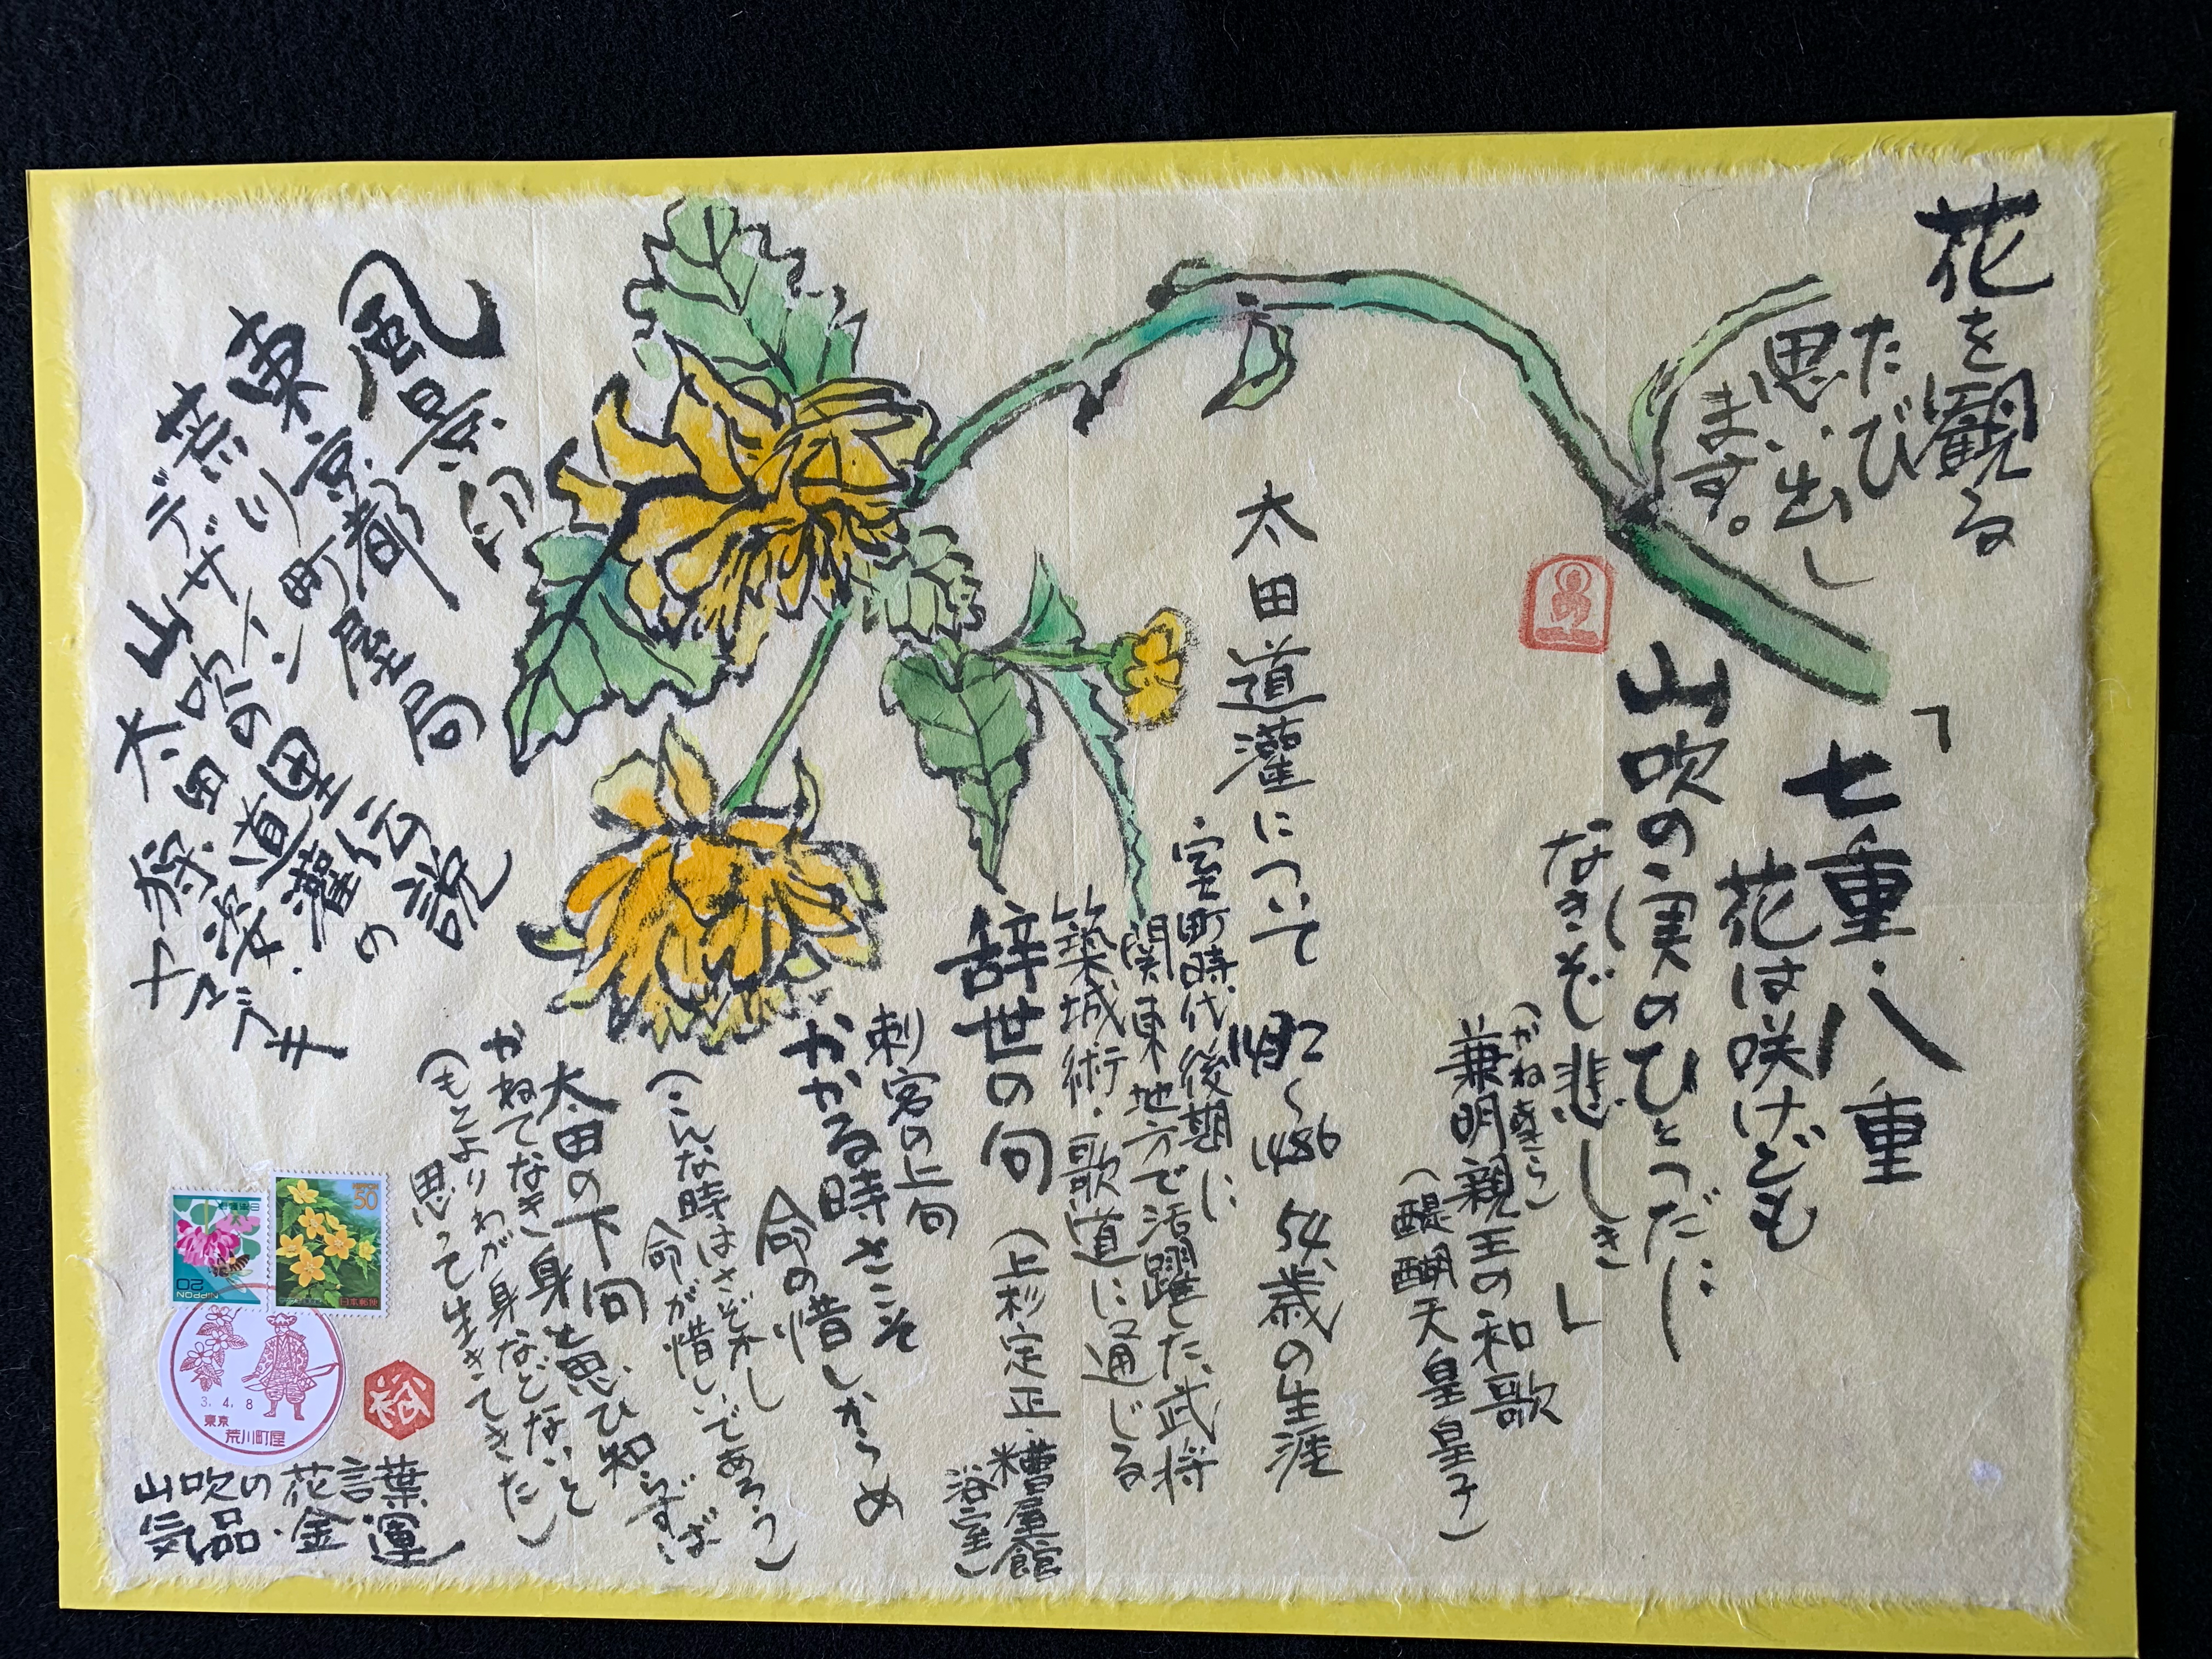 花を観る
たび
思い出し
ます。
「七重・八重
花は咲けども
山吹の実のひとつだに
なきぞ悲しき」
(かねあきら)
兼明親王の和歌
(醍醐天皇皇子)
太田道灌について 1432〜1486 54歳の生涯
室町時代後期に
関東地方で活躍した武将
築城術・歌道に通じる
辞世の句 (上杉定正・糟屋館
浴室)
刺客の上句
かかる時さこそ
命の惜しからめ
(こんな時はさぞかし
命が惜しいであろう)
太田の下句
かねてなき身と思ひ知らずば
(もとよりわが身などないと
思って生きてきた)
風景印
東京都
荒川町屋局
デザイン
山吹の里伝説
太田道灌の
狩姿・
ヤマブキ
日本郵便
NIPPON
20
NIPPON
50
日本郵便
3. 4. 8
東京
荒川町屋
山吹の花言葉
気品・金運